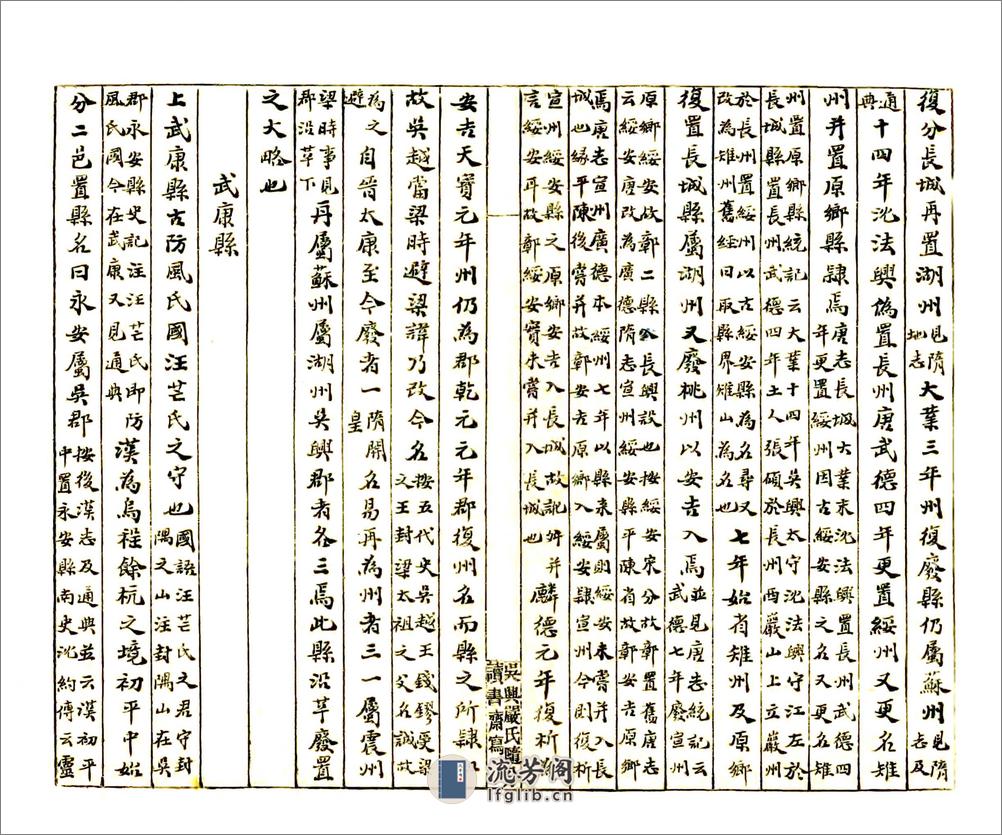 復分長城再置湖州見隋地志大業三年州復廢縣仍屬蘇州見隋志及
通典十四年沈法興偽置長州唐武德四年更置綏州又更名雉
州并置原鄉縣隸焉唐志長城大業末沈法興置長州武德四年更置綏州因古綏安縣之名又更名雉
州置原鄉縣統記云大業十四年吳興太守沈法興守江左於長城縣置長州武德四年土人張碩於長州西嚴山上立嚴州
於長州置綏州以古綏安縣為名尋又改為雉州舊經曰取縣界雉山為名也七年始省雉州及原鄉
復置長城縣屬湖州又廢桃州以安吉入焉並見唐志統記云武德七年廢宣州
原鄉綏安故鄣二縣長興設也按綏安宋分故鄣置舊唐志云綏安唐改為廣德隋志宣州綏安縣平陳省故鄣安吉原鄉
焉唐志宣州廣德本綏州七年以縣來屬則綏安未嘗并入長城也緣平陳後嘗并故鄣安吉原鄉入綏安隸宣州今則復析
宣州綏安縣之原鄉安吉入長城故訛舛并言綏安耳故鄣綏安實未嘗并入長城也麟德元年復析
吳興嚴氏隨
讀書齋寫
安吉天寶元年州仍為郡乾元元年郡復州名而縣之所隸
故吳越當梁時避梁諱乃改今名按五代史吳越王錢鏐更梁之王封梁太祖之父名誠故
為避之自晉太康至今廢者一隋開皇名易再為州者三一屬震州
梁時事見郡沿革下再屬蘇州屬湖州吳興郡者各三焉此縣沿革廢置
之大略也
武康縣
上武康縣古防風氏國汪芒氏之守也國語汪芒氏之君守封隅之山注封隅山在吳
郡永安縣史記注汪芒氏即防風氏國今在武康又見通典漢為烏程餘杭之境初平中始
分二邑置縣名曰永安屬吳郡按後漢志及通典並云漢初平中置永安縣南史沈約傳云靈
流芳阁
lfglib.cn